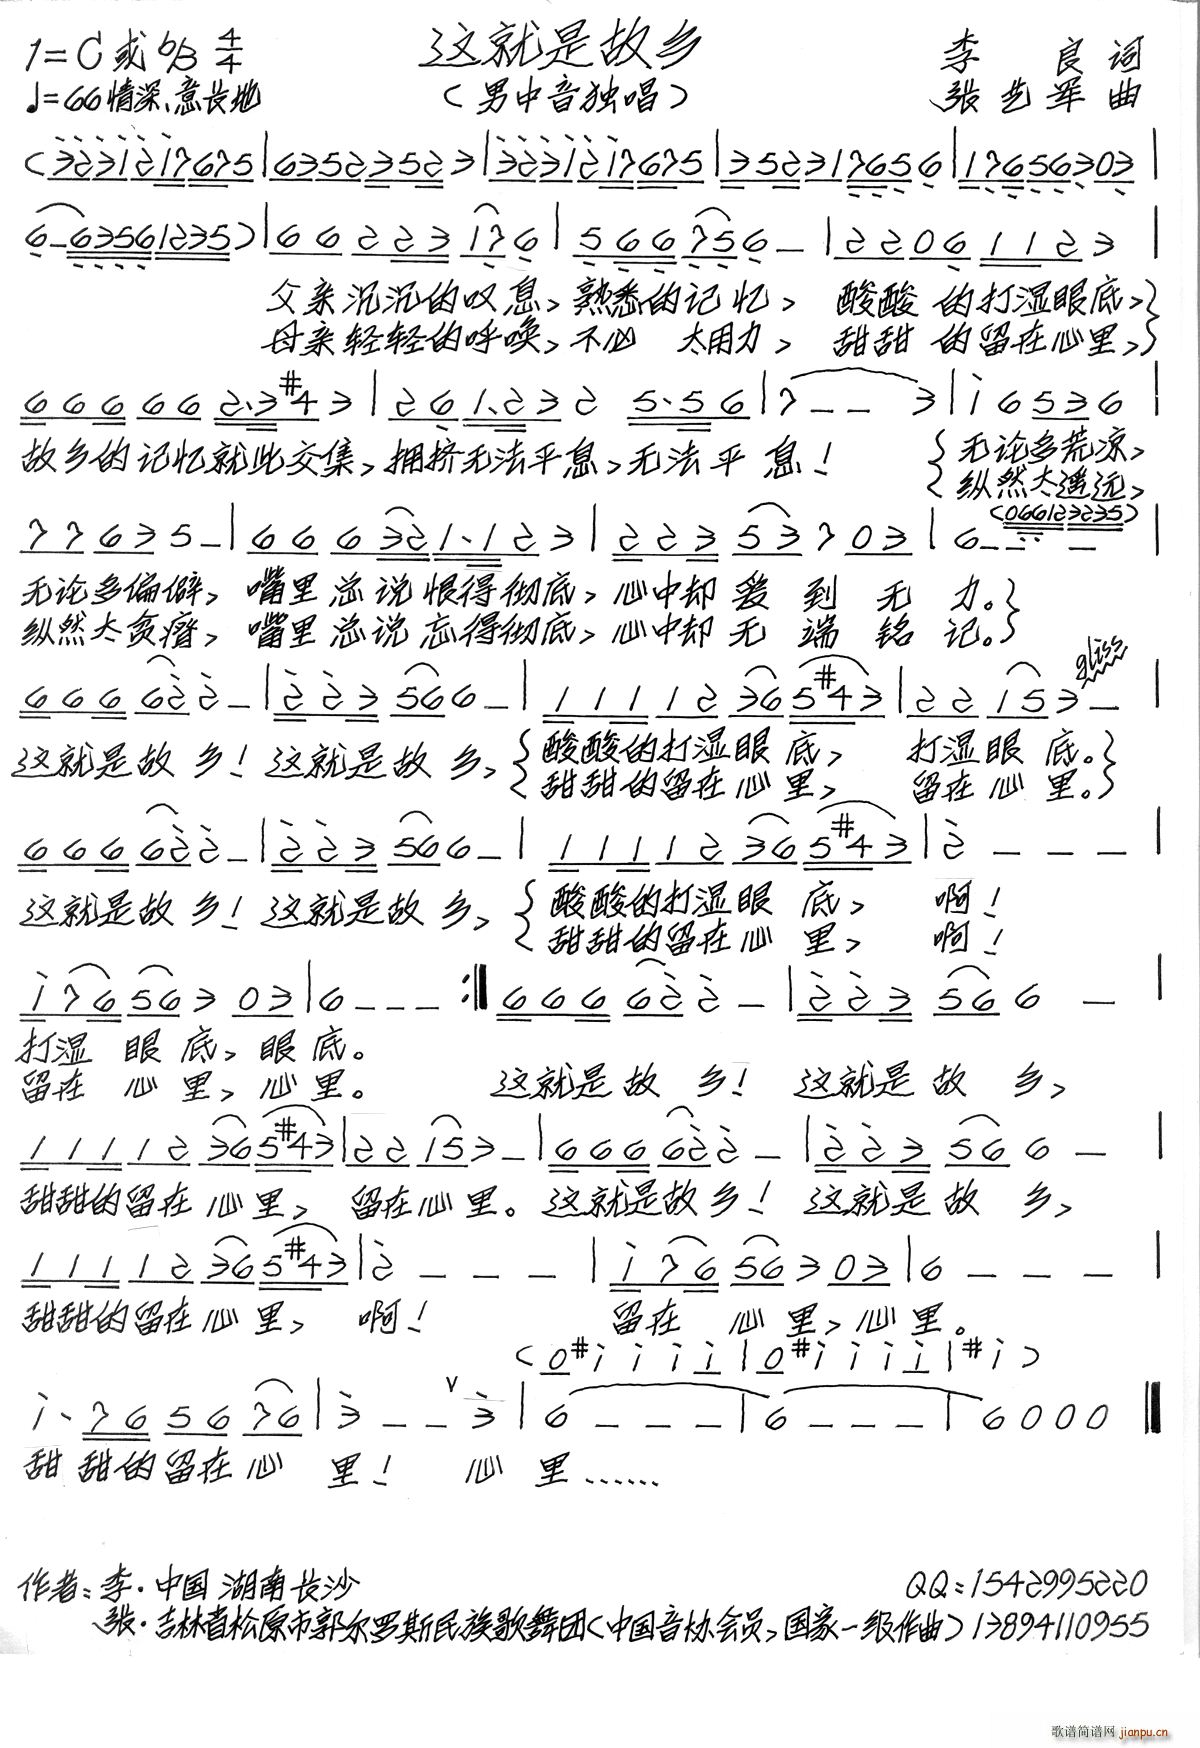 1=C或♭B 4/4 这就是故乡 李良词
♩=66 情深、意长地 （男中音独唱） 张艺军曲
(3231217675|63523523|3231217675|352317656|17656303|
6-63561235)|66223176|566756-|22061123|
父亲沉沉的叹息，熟悉的记忆，酸酸的打湿眼底，
母亲轻轻的呼唤，不必太用力，甜甜的留在心里，
666662·3#43|261·232 5·56|7--3|i6536|
故乡的记忆就此交集，拥挤无法平息，无法平息！ 无论多荒凉，
纵然太遥远，
(066123235)
77635-|666321·123|22353703|6---|
无论多偏僻，嘴里总说恨得彻底，心中却爱到无力。
纵然太贪瘠，嘴里总说忘得彻底，心中却无端铭记。
gliss
666622-|223566-|11112365#43|22153-|
这就是故乡！这就是故乡， 酸酸的打湿眼底， 打湿眼底。
甜甜的留在心里， 留在心里。
666622-|223566-|11112365#43|2---|
这就是故乡！这就是故乡， 酸酸的打湿眼底， 啊！
甜甜的留在心里， 啊！
i7656303|6---:‖666622-|223566-|
打湿眼底，眼底。
留在心里，心里。 这就是故乡！ 这就是故乡，
11112365#43|22153-|666622-|223566-|
甜甜的留在心里， 留在心里。这就是故乡！ 这就是故乡，
11112365#43|2---|i7656303|6---|
甜甜的留在心里， 啊！ 留在心里，心里。
(0#iiii|0#iiii|#i)
i·765676|3--∨3|6---|6---|6000‖
甜甜的留在心里！ 心里……
作者：李·中国湖南长沙 QQ：1542995220
张·吉林省松原市郭尔罗斯民族歌舞团（中国音协会员，国家一级作曲）13894110955
歌谱简谱网 jianpu.cn